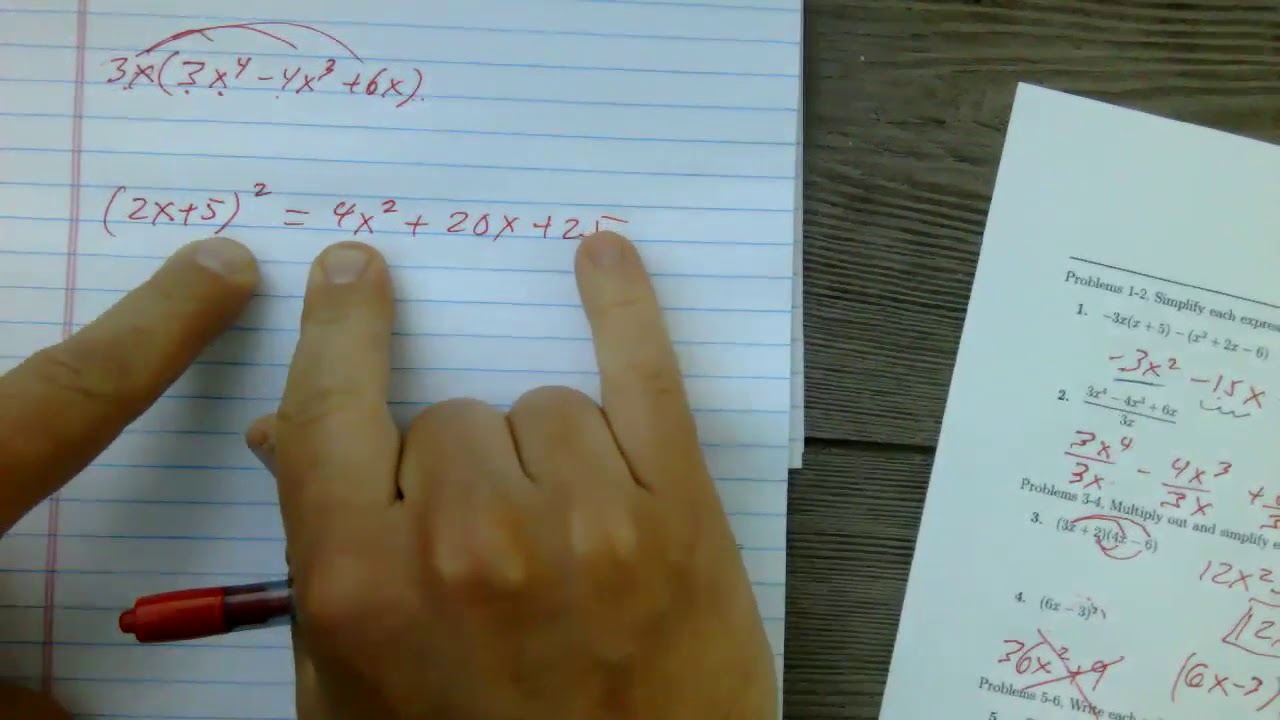 3x(3x⁴ - 4x³ + 6x)
(2x+5)² = 4x² + 20x + 25
Problems 1-2, Simplify each
1. -3x(x + 5) - (x² + 2x - 6)
-3x² - 15x
2. 3x⁴ - 4x³ + 6x
3x
3x⁴ - 4x³ +
3x 3x
Problems 3-4, Multiply out and simplify
3. (3x + 2)(4x - 6)
12x²
12
4. (6x - 3)²
36x² + 9
(6x-3)
Problems 5-6, Write each
5.